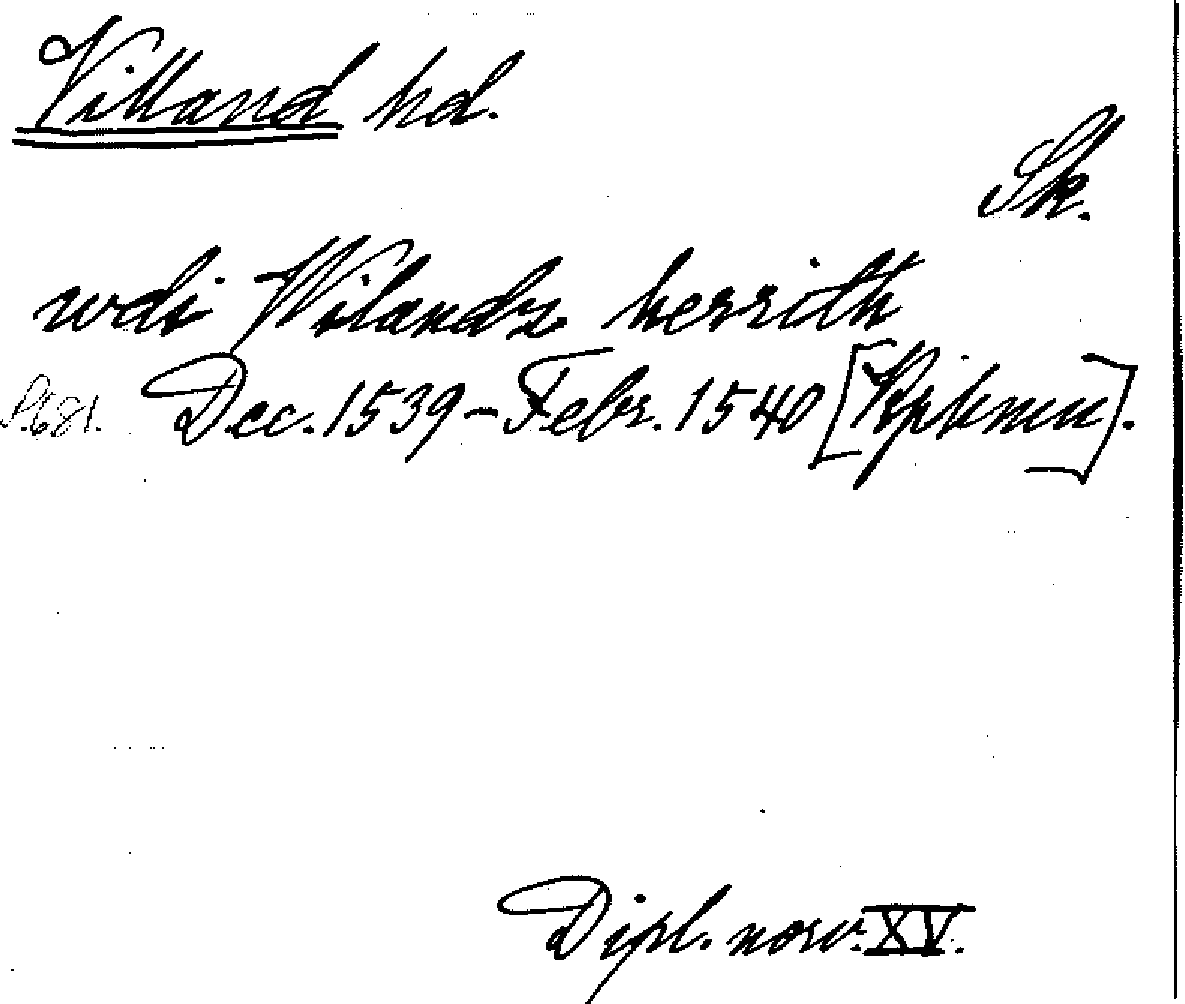 Villand hd.
Sk.
wdi Wilandz herrith
S. 681. Dec. 1539 - Febr. 1540 [Kphmn].
Dipl. norv. XV.